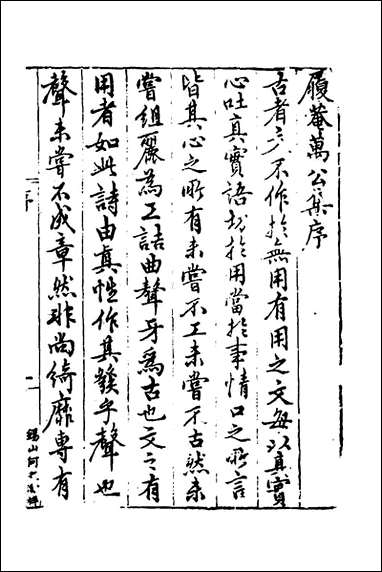 履菴萬公集序
古者文不作於無用有用之文每以真實
心吐真實語切於用當於事情口之所言
皆其心之所有未嘗不工未嘗不古然未
嘗組麗為工詰曲聲牙為古也文之有
用者如此詩由真性作其發乎聲也
聲未嘗不成章然非尚綺靡專有
序
一
錫山何